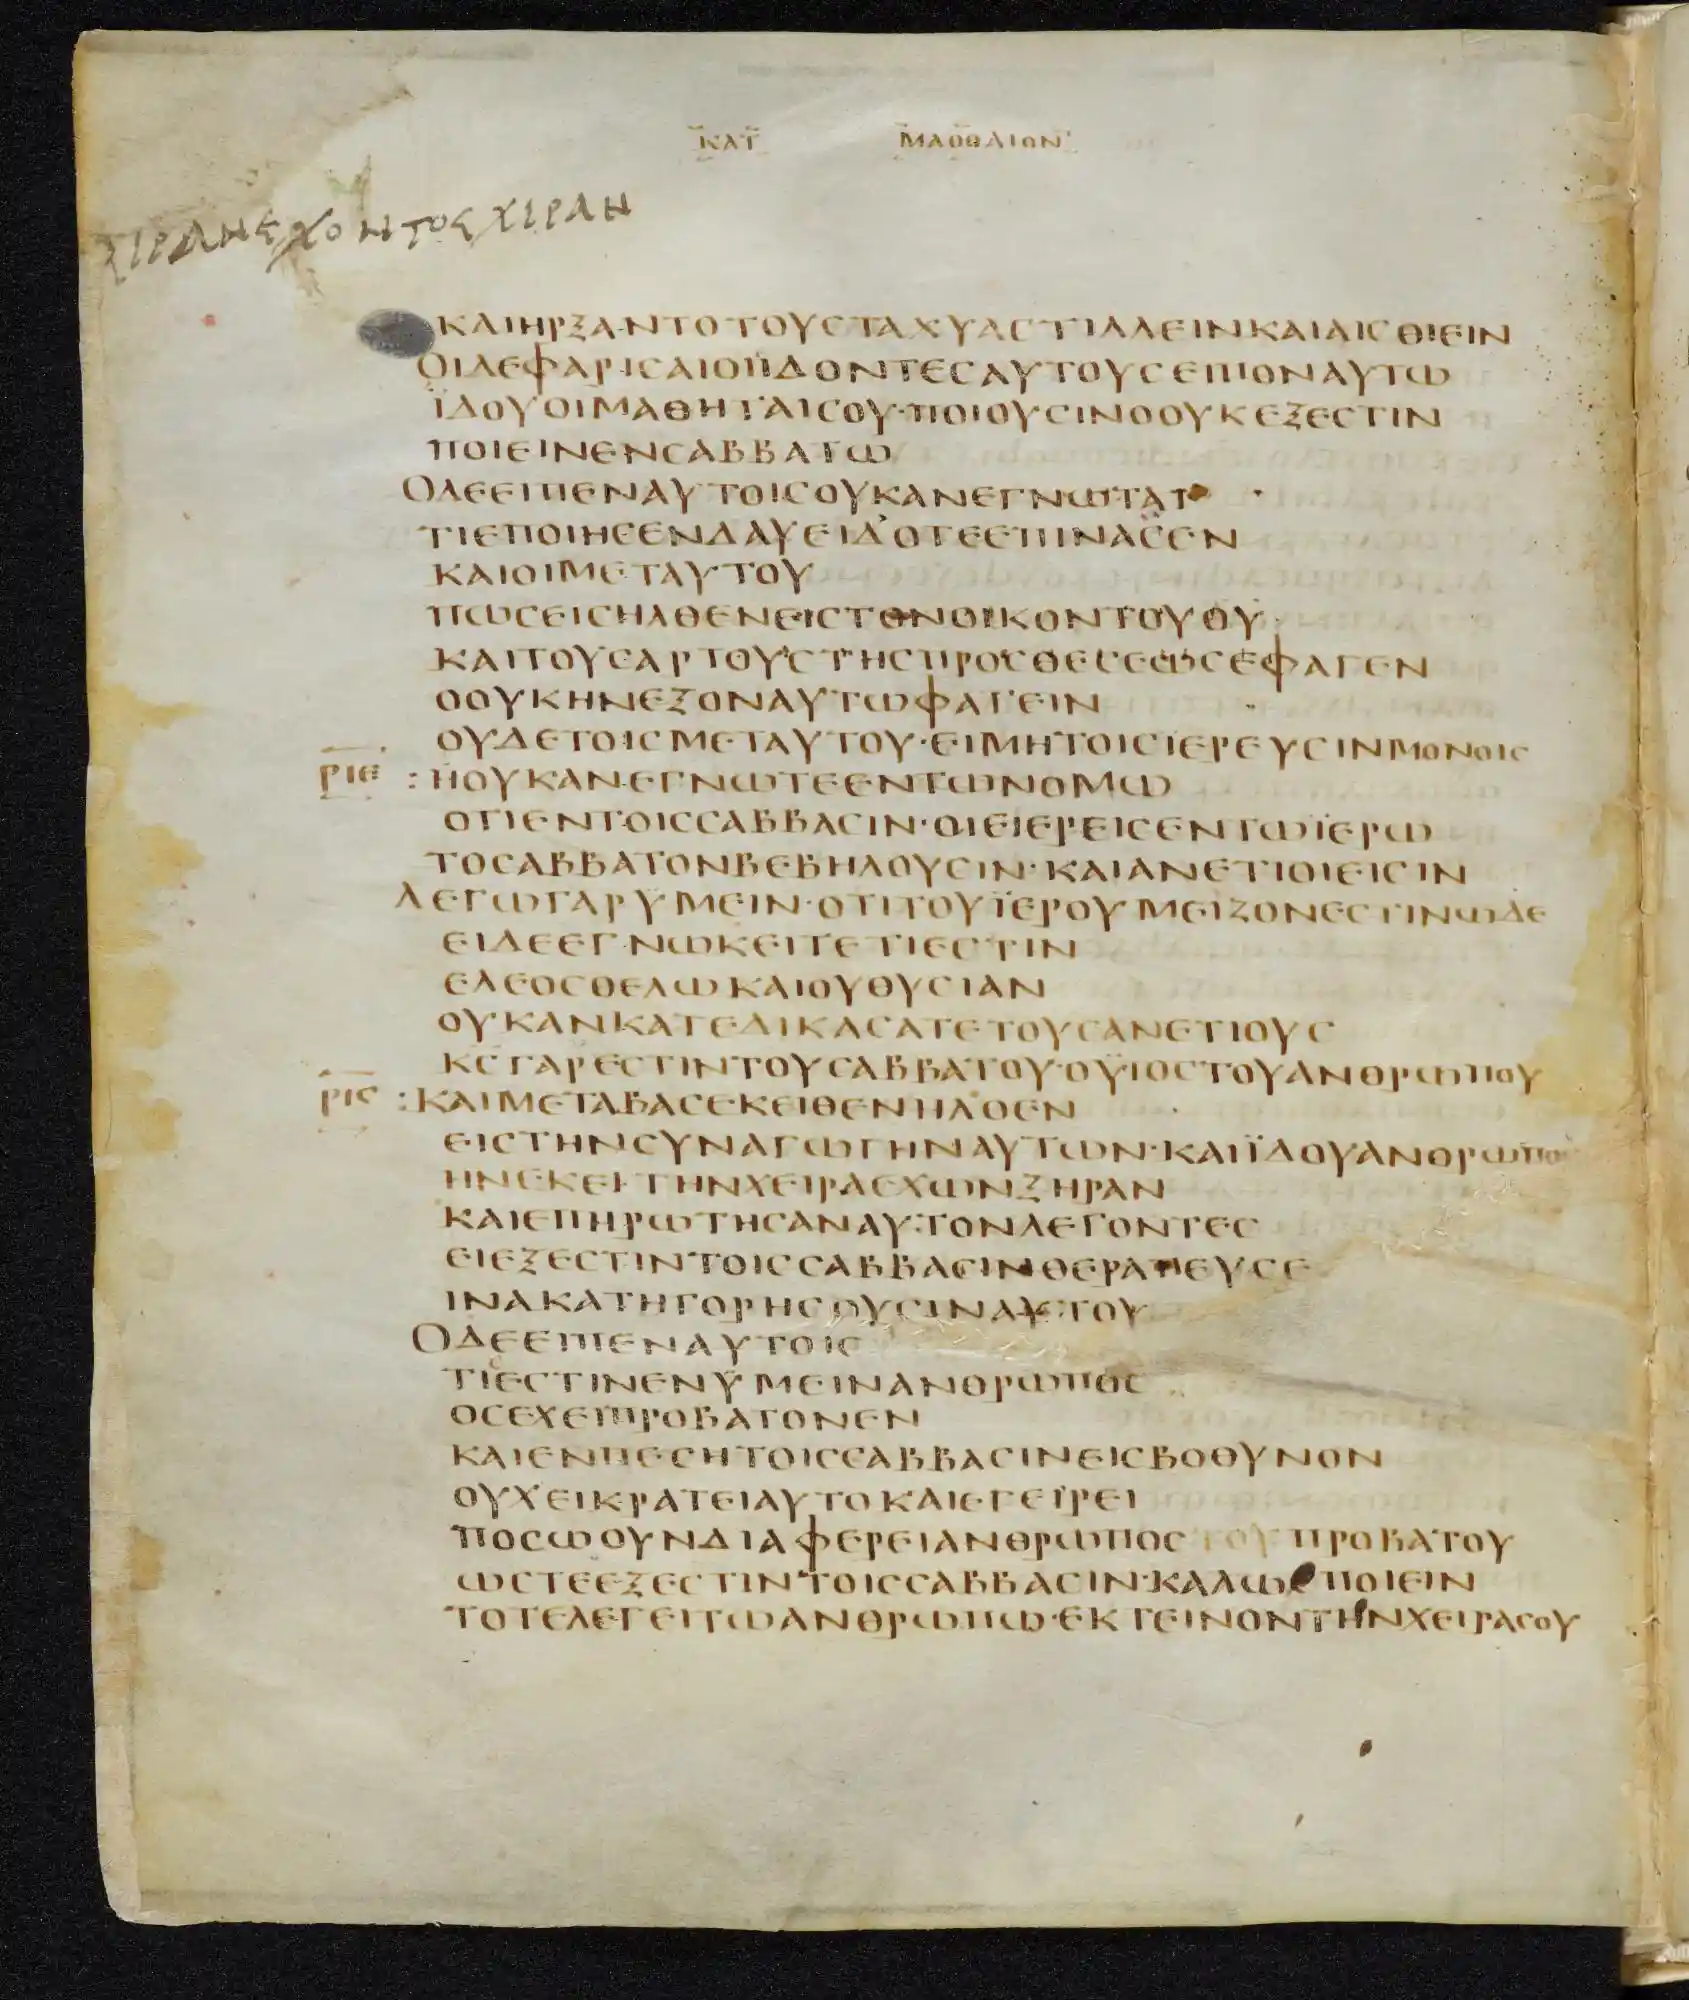 ΚΑΤ ΜΑΘΘΑΙΟΝ
ΞΙΡΑΝ ΕΧΟΝΤΟΣ ΧΙΡΑΝ
ΚΑΙΗΡΞΑΝΤΟΤΟΥϹΤΑΧΥΑϹΤΙΛΛΕΙΝΚΑΙΑΙϹΘΙΕΙΝ
ΟΙΔΕΦΑΡΙϹΑΙΟΙΪΔΟΝΤΕϹΑΥΤΟΥϹΕΙΠΟΝΑΥΤΩ
ΪΔΟΥΟΙΜΑΘΗΤΑΙϹΟΥ·ΠΟΙΟΥϹΙΝΟΟΥΚΕΞΕϹΤΙΝ
ΠΟΙΕΙΝΕΝϹΑΒΒΑΤΩ
ΟΔΕΕΙΠΕΝΑΥΤΟΙϹΟΥΚΑΝΕΓΝΩΤΑΤ
ΤΙΕΠΟΙΗϹΕΝΔΑΥΕΙΔΟΤΕΕΠΙΝΑϹΕΝ
ΚΑΙΟΙΜΕΤΑΥΤΟΥ
ΠΩϹΕΙϹΗΛΘΕΝΕΙϹΤΟΝΟΙΚΟΝΤΟΥΘΥ
ΚΑΙΤΟΥϹΑΡΤΟΥϹΤΗϹΠΡΟϹΘΕϹΕΩϹΕΦΑΓΕΝ
ΟΟΥΚΗΝΕΞΟΝΑΥΤΩΦΑΓΕΙΝ
ΟΥΔΕΤΟΙϹΜΕΤΑΥΤΟΥ·ΕΙΜΗΤΟΙϹΪΕΡΕΥϹΙΝΜΟΝΟΙϹ
ΡΙΕ :ΗΟΥΚΑΝΕΓΝΩΤΕΕΝΤΩΝΟΜΩ
ΟΤΙΕΝΤΟΙϹϹΑΒΒΑϹΙΝ·ΟΙΕΙΕΡΕΙϹΕΝΤΩΪΕΡΩ
ΤΟϹΑΒΒΑΤΟΝΒΕΒΗΛΟΥϹΙΝ·ΚΑΙΑΝΕΤΙΟΙΕΙϹΙΝ
ΛΕΓΩΓΑΡΥΜΕΙΝ·ΟΤΙΤΟΥΪΕΡΟΥΜΕΙΖΟΝΕϹΤΙΝΩΔΕ
ΕΙΔΕΕΓΝΩΚΕΙΤΕΤΙΕϹΤΙΝ
ΕΛΕΟϹΘΕΛΩΚΑΙΟΥΘΥϹΙΑΝ
ΟΥΚΑΝΚΑΤΕΔΙΚΑϹΑΤΕΤΟΥϹΑΝΕΤΙΟΥϹ
ΚϹΓΑΡΕϹΤΙΝΤΟΥϹΑΒΒΑΤΟΥ·ΟΥΪΟϹΤΟΥΑΝΘΡΩΠΟΥ
ΡΙϚ :ΚΑΙΜΕΤΑΒΑϹΕΚΕΙΘΕΝΗΛΘΕΝ
ΕΙϹΤΗΝϹΥΝΑΓΩΓΗΝΑΥΤΩΝ·ΚΑΙΪΔΟΥΑΝΘΡΩΠΟϹ
ΗΝΕΚΕΙΤΗΝΧΕΙΡΑΕΧΩΝΞΗΡΑΝ
ΚΑΙΕΠΗΡΩΤΗϹΑΝΑΥΤΟΝΛΕΓΟΝΤΕϹ
ΕΙΕΞΕϹΤΙΝΤΟΙϹϹΑΒΒΑϹΙΝΘΕΡΑΠΕΥϹΕ
ΙΝΑΚΑΤΗΓΟΡΗϹΟΥϹΙΝΑΥΤΟΥ
ΟΔΕΕΙΠΕΝΑΥΤΟΙϹ
ΤΙΕϹΤΙΝΕΝΥΜΕΙΝΑΝΘΡΩΠΟϹ
ΟϹΕΧΕΙΠΡΟΒΑΤΟΝΕΝ
ΚΑΙΕΝΠΕϹΗΤΟΙϹϹΑΒΒΑϹΙΝΕΙϹΒΟΘΥΝΟΝ
ΟΥΧΕΙΚΡΑΤΕΙΑΥΤΟΚΑΙΕΓΕΙΡΕΙ
ΠΟϹΩΟΥΝΔΙΑΦΕΡΕΙΑΝΘΡΩΠΟϹΤΟΥΠΡΟΒΑΤΟΥ
ΩϹΤΕΕΞΕϹΤΙΝΤΟΙϹϹΑΒΒΑϹΙΝ·ΚΑΛΩϹΠΟΙΕΙΝ
ΤΟΤΕΛΕΓΕΙΤΩΑΝΘΡΩΠΩ·ΕΚΤΕΙΝΟΝΤΗΝΧΕΙΡΑϹΟΥ